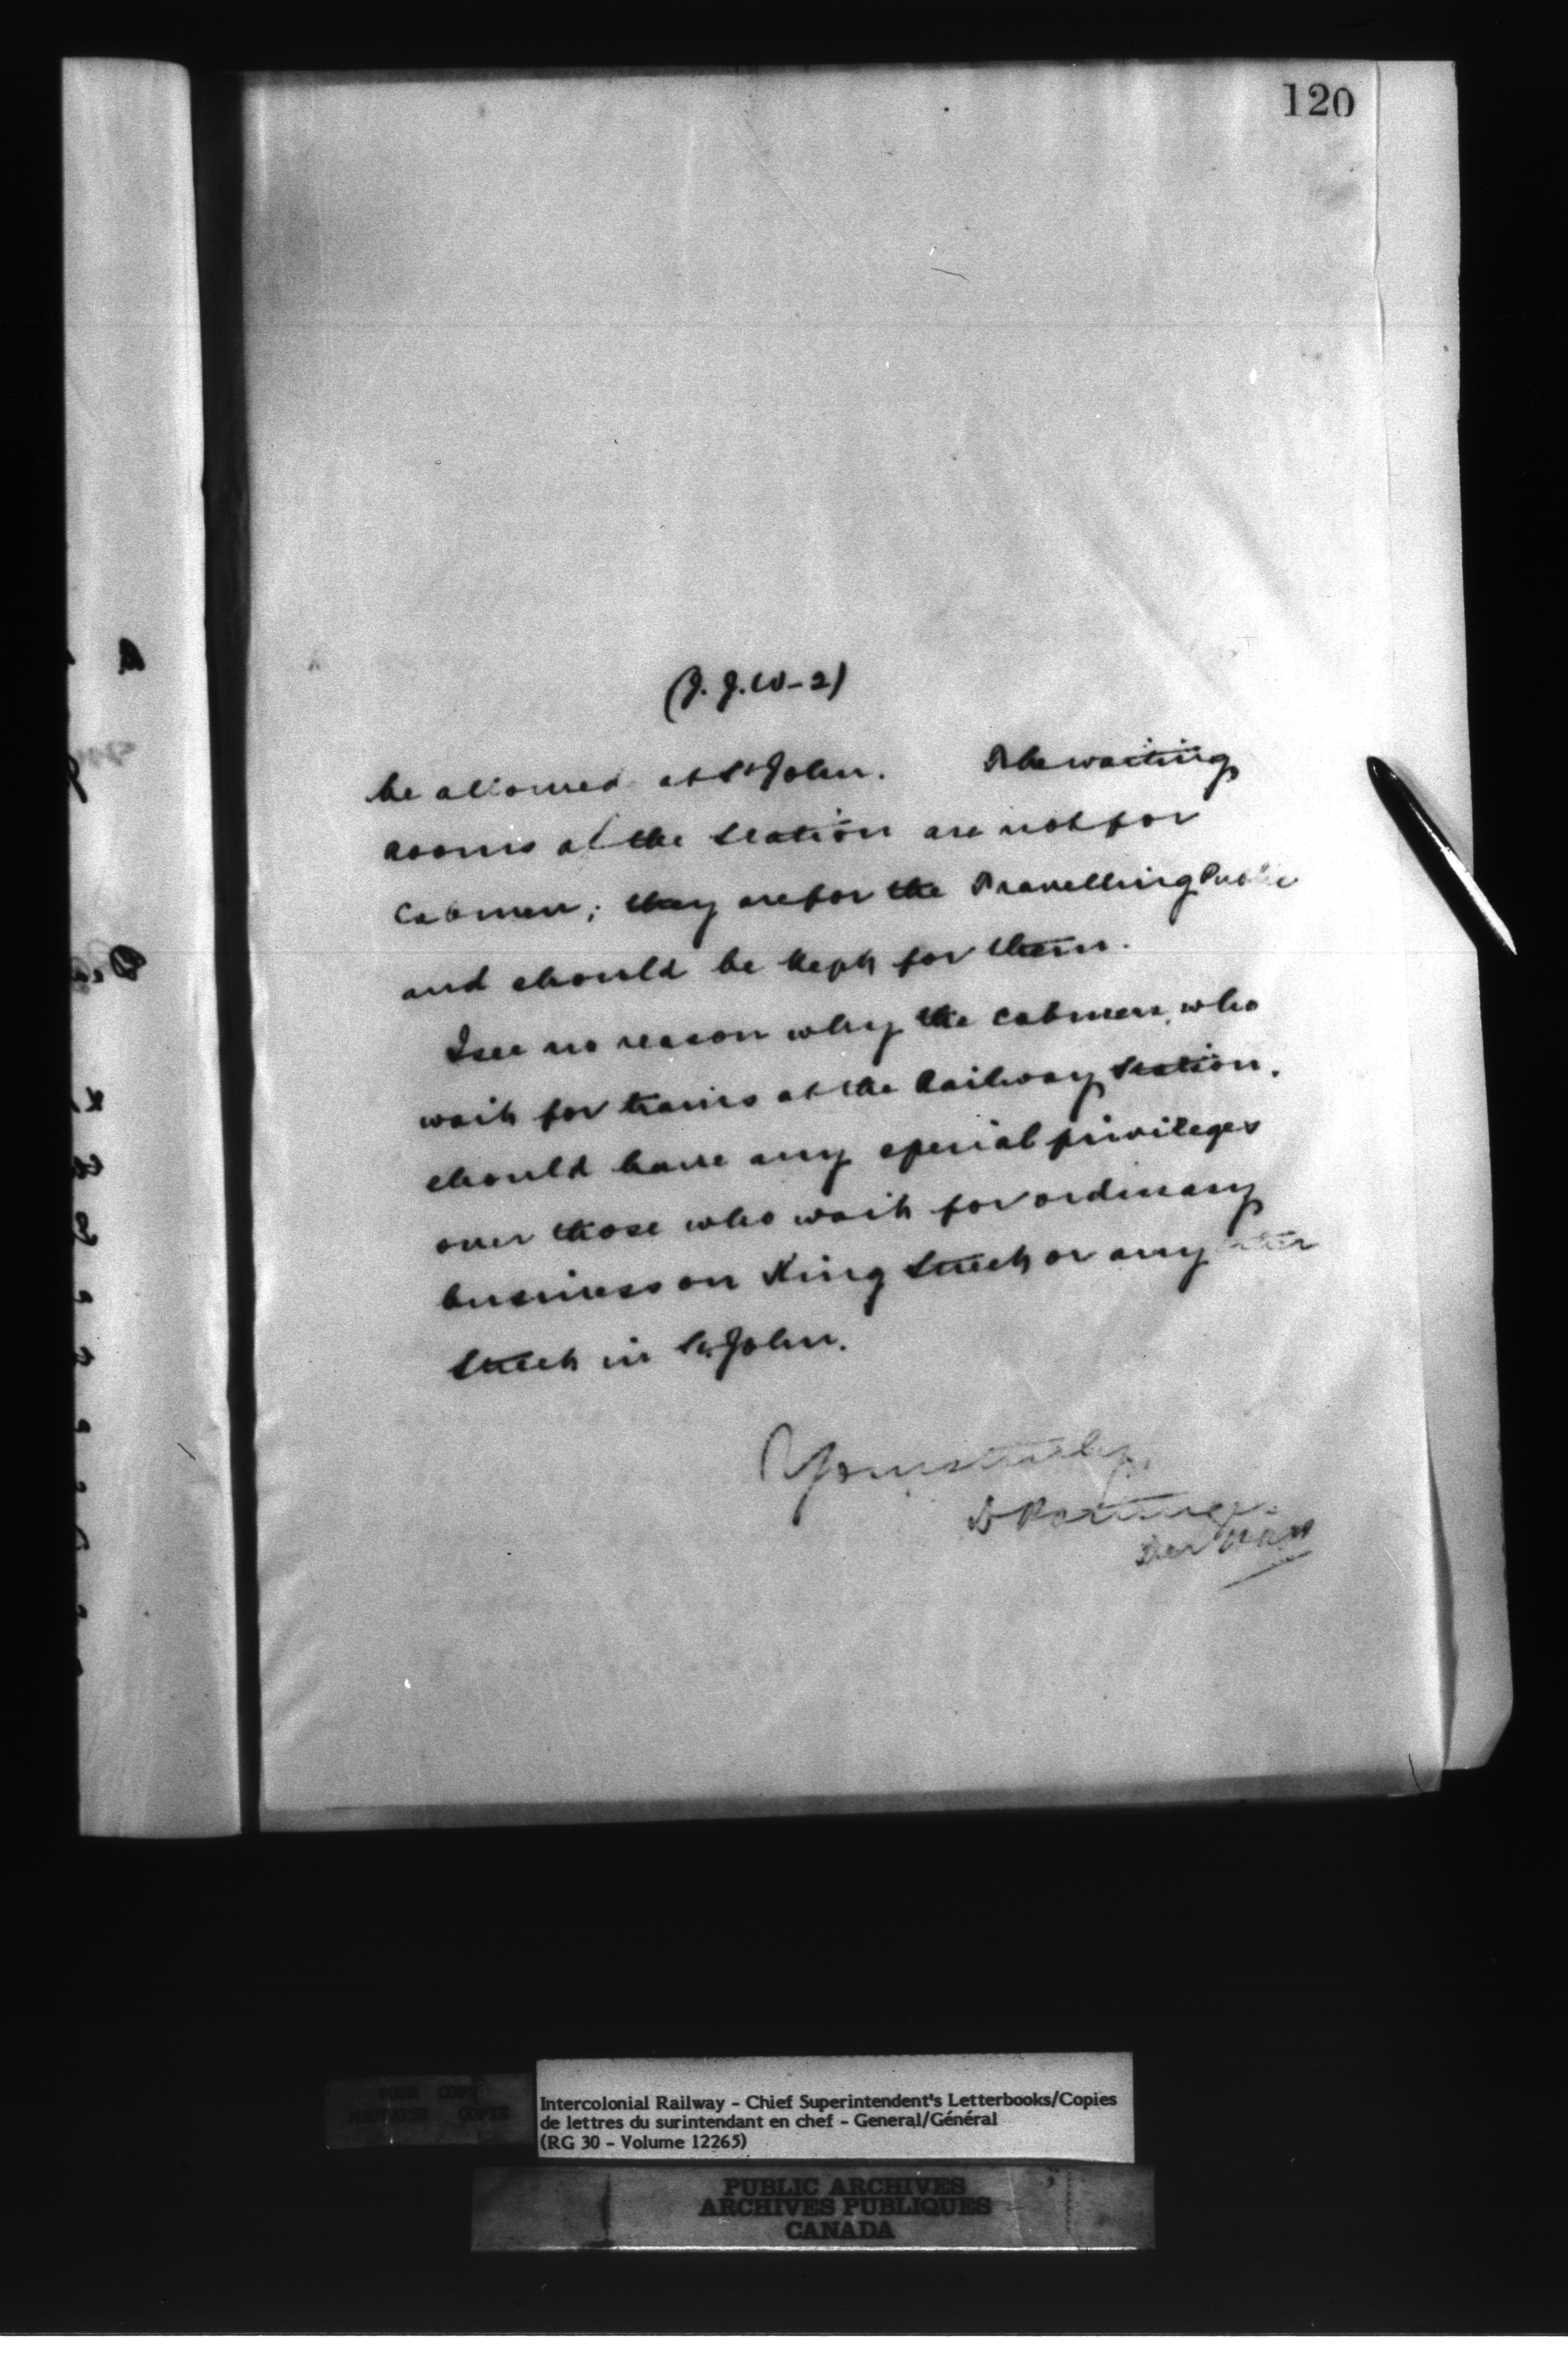 120
(J. J. W-2)
be allowed at St John. The waiting
rooms at the Station are not for
Cabmen; they are for the Travelling Public
and should be kept for them.
I see no reason why the cabmen, who
wait for trains at the Railway Station.
should have any special privileges
over those who wait for ordinary
business on King Street or any other
Street in St. John.
Yours truly,
D Pottinger
POOR COPY
MAUVAISE COPIE
Intercolonial Railway - Chief Superintendent's Letterbooks/Copies
de lettres du surintendant en chef - General/Général
(RG 30 - Volume 12265)
PUBLIC ARCHIVES
ARCHIVES PUBLIQUES
CANADA